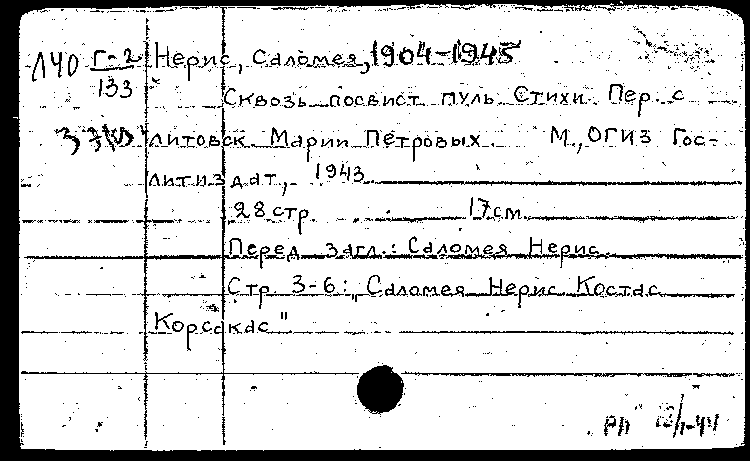 Л40 Г-2 Нерис, Саломея, 1904-1945
133
Сквозь посвист пуль Стихи. Пер. с
литовск. Марии Петровых. М., ОГИЗ Гос-
литиздат, 1943
28 стр. 17см.
Перед загл.: Саломея Нерис.
Стр. 3-6: „Саломея Нерис Костас
Корсакас"